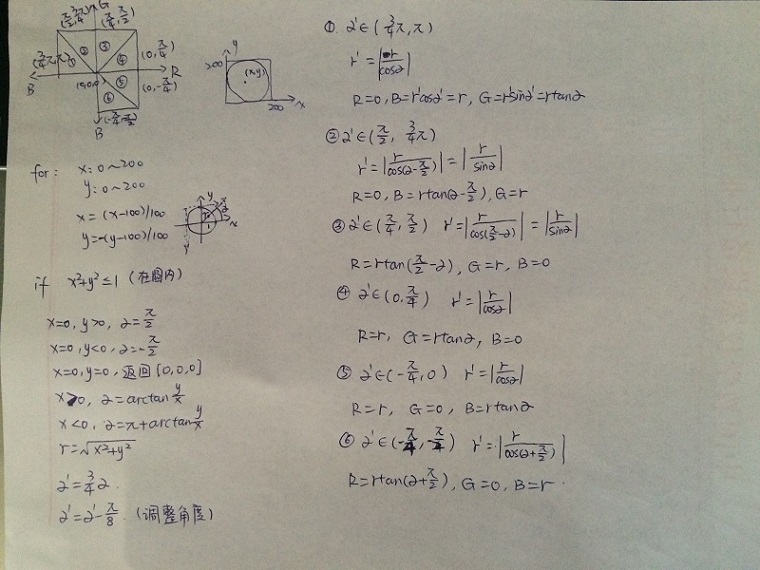 G
(π/2, 3/4π) (π/4, π/2)
(3/4π, π) ① ② ③ ④ (0, π/4)
R
B ⑤ (0, -π/4)
⑥
B
y
200 (x,y)
200 x
for: x: 0~200
y: 0~200
x = (x-100)/100
y = -(y-100)/100
y
x
if x²+y² ≤ 1 (在圆内)
x=0, y>0, 2=π/2
x=0, y<0, 2=-π/2
x=0, y=0, 返回 [0,0,0]
x>0, 2=arctan y/x
x<0, 2=π+arctan y/x
r=√x²+y²
2'=3/4 2
2'=2'-π/8. (调整角度)
① 2'∈(3/4π, π)
r'=|r/cos2|
R=0, B=r'cos2'=r, G=r'sin2'=rtan2
② 2'∈(π/2, 3/4π)
r'=|r/cos(2-π/2)|=|r/sin2|
R=0, B=rtan(2-π/2), G=r
③ 2'∈(π/4, π/2) r'=|r/cos(π/2-2)|=|r/sin2|
R=rtan(π/2-2), G=r, B=0
④ 2'∈(0, π/4) r'=|r/cos2|
R=r, G=rtan2, B=0
⑤ 2'∈(-π/4, 0) r'=|r/cos2|
R=r, G=0, B=rtan2
⑥ 2'∈(-π/2, -π/4) r'=|r/cos(2+π/2)|
R=rtan(2+π/2), G=0, B=r.